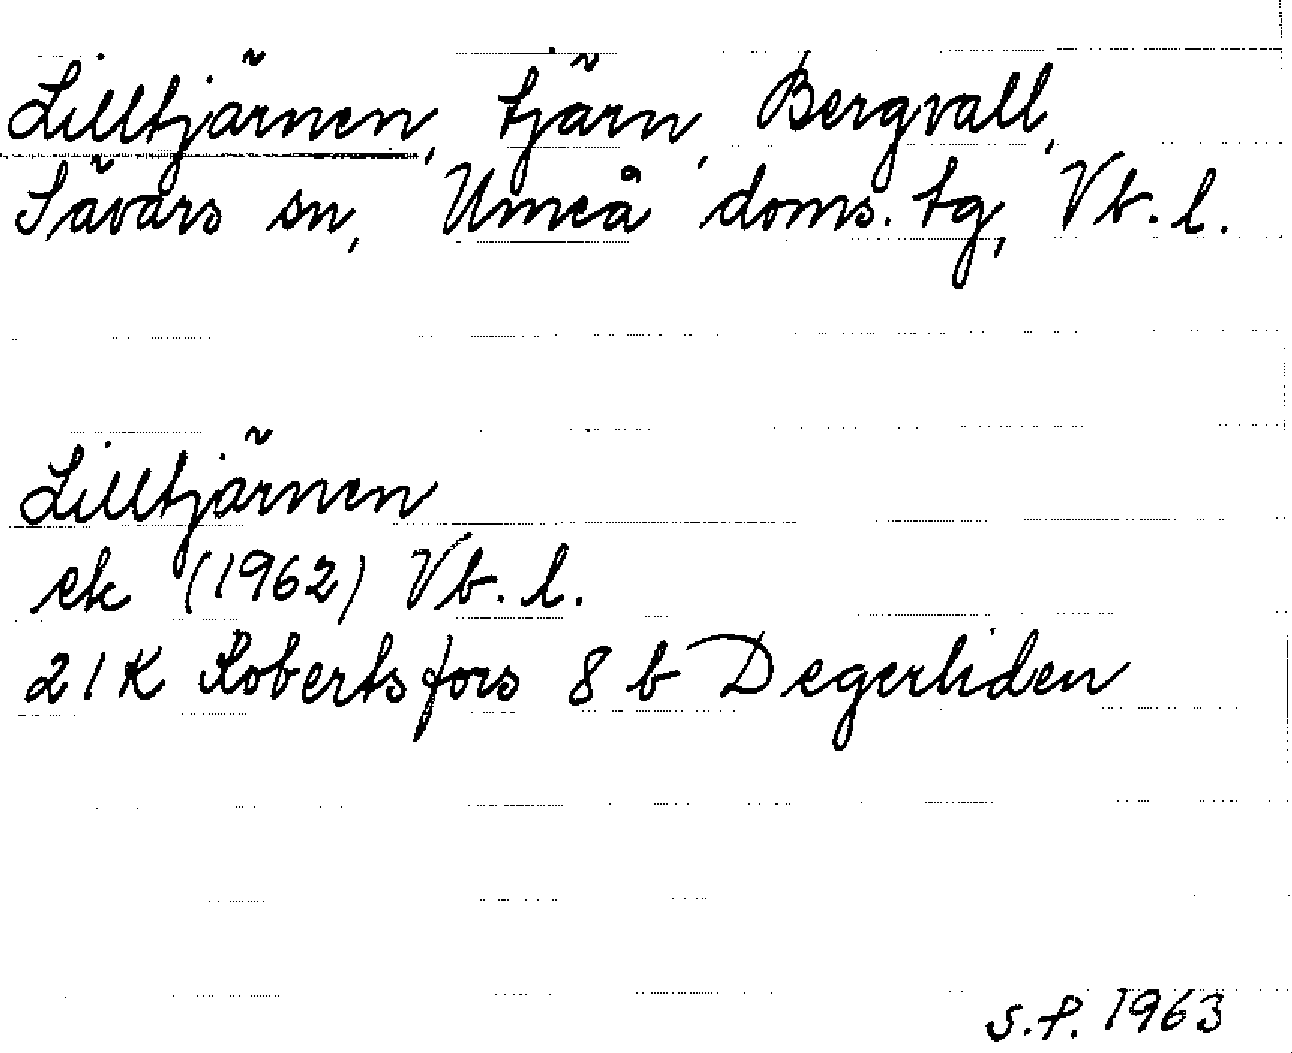 Lilltjärnen, tjärn, Bergvall,
Sävars sn, Umeå doms. tg, Vb. l.
Lilltjärnen
ek (1962) Vb. l.
21K Robertsfors 8 b Degerliden
S.P. 1963